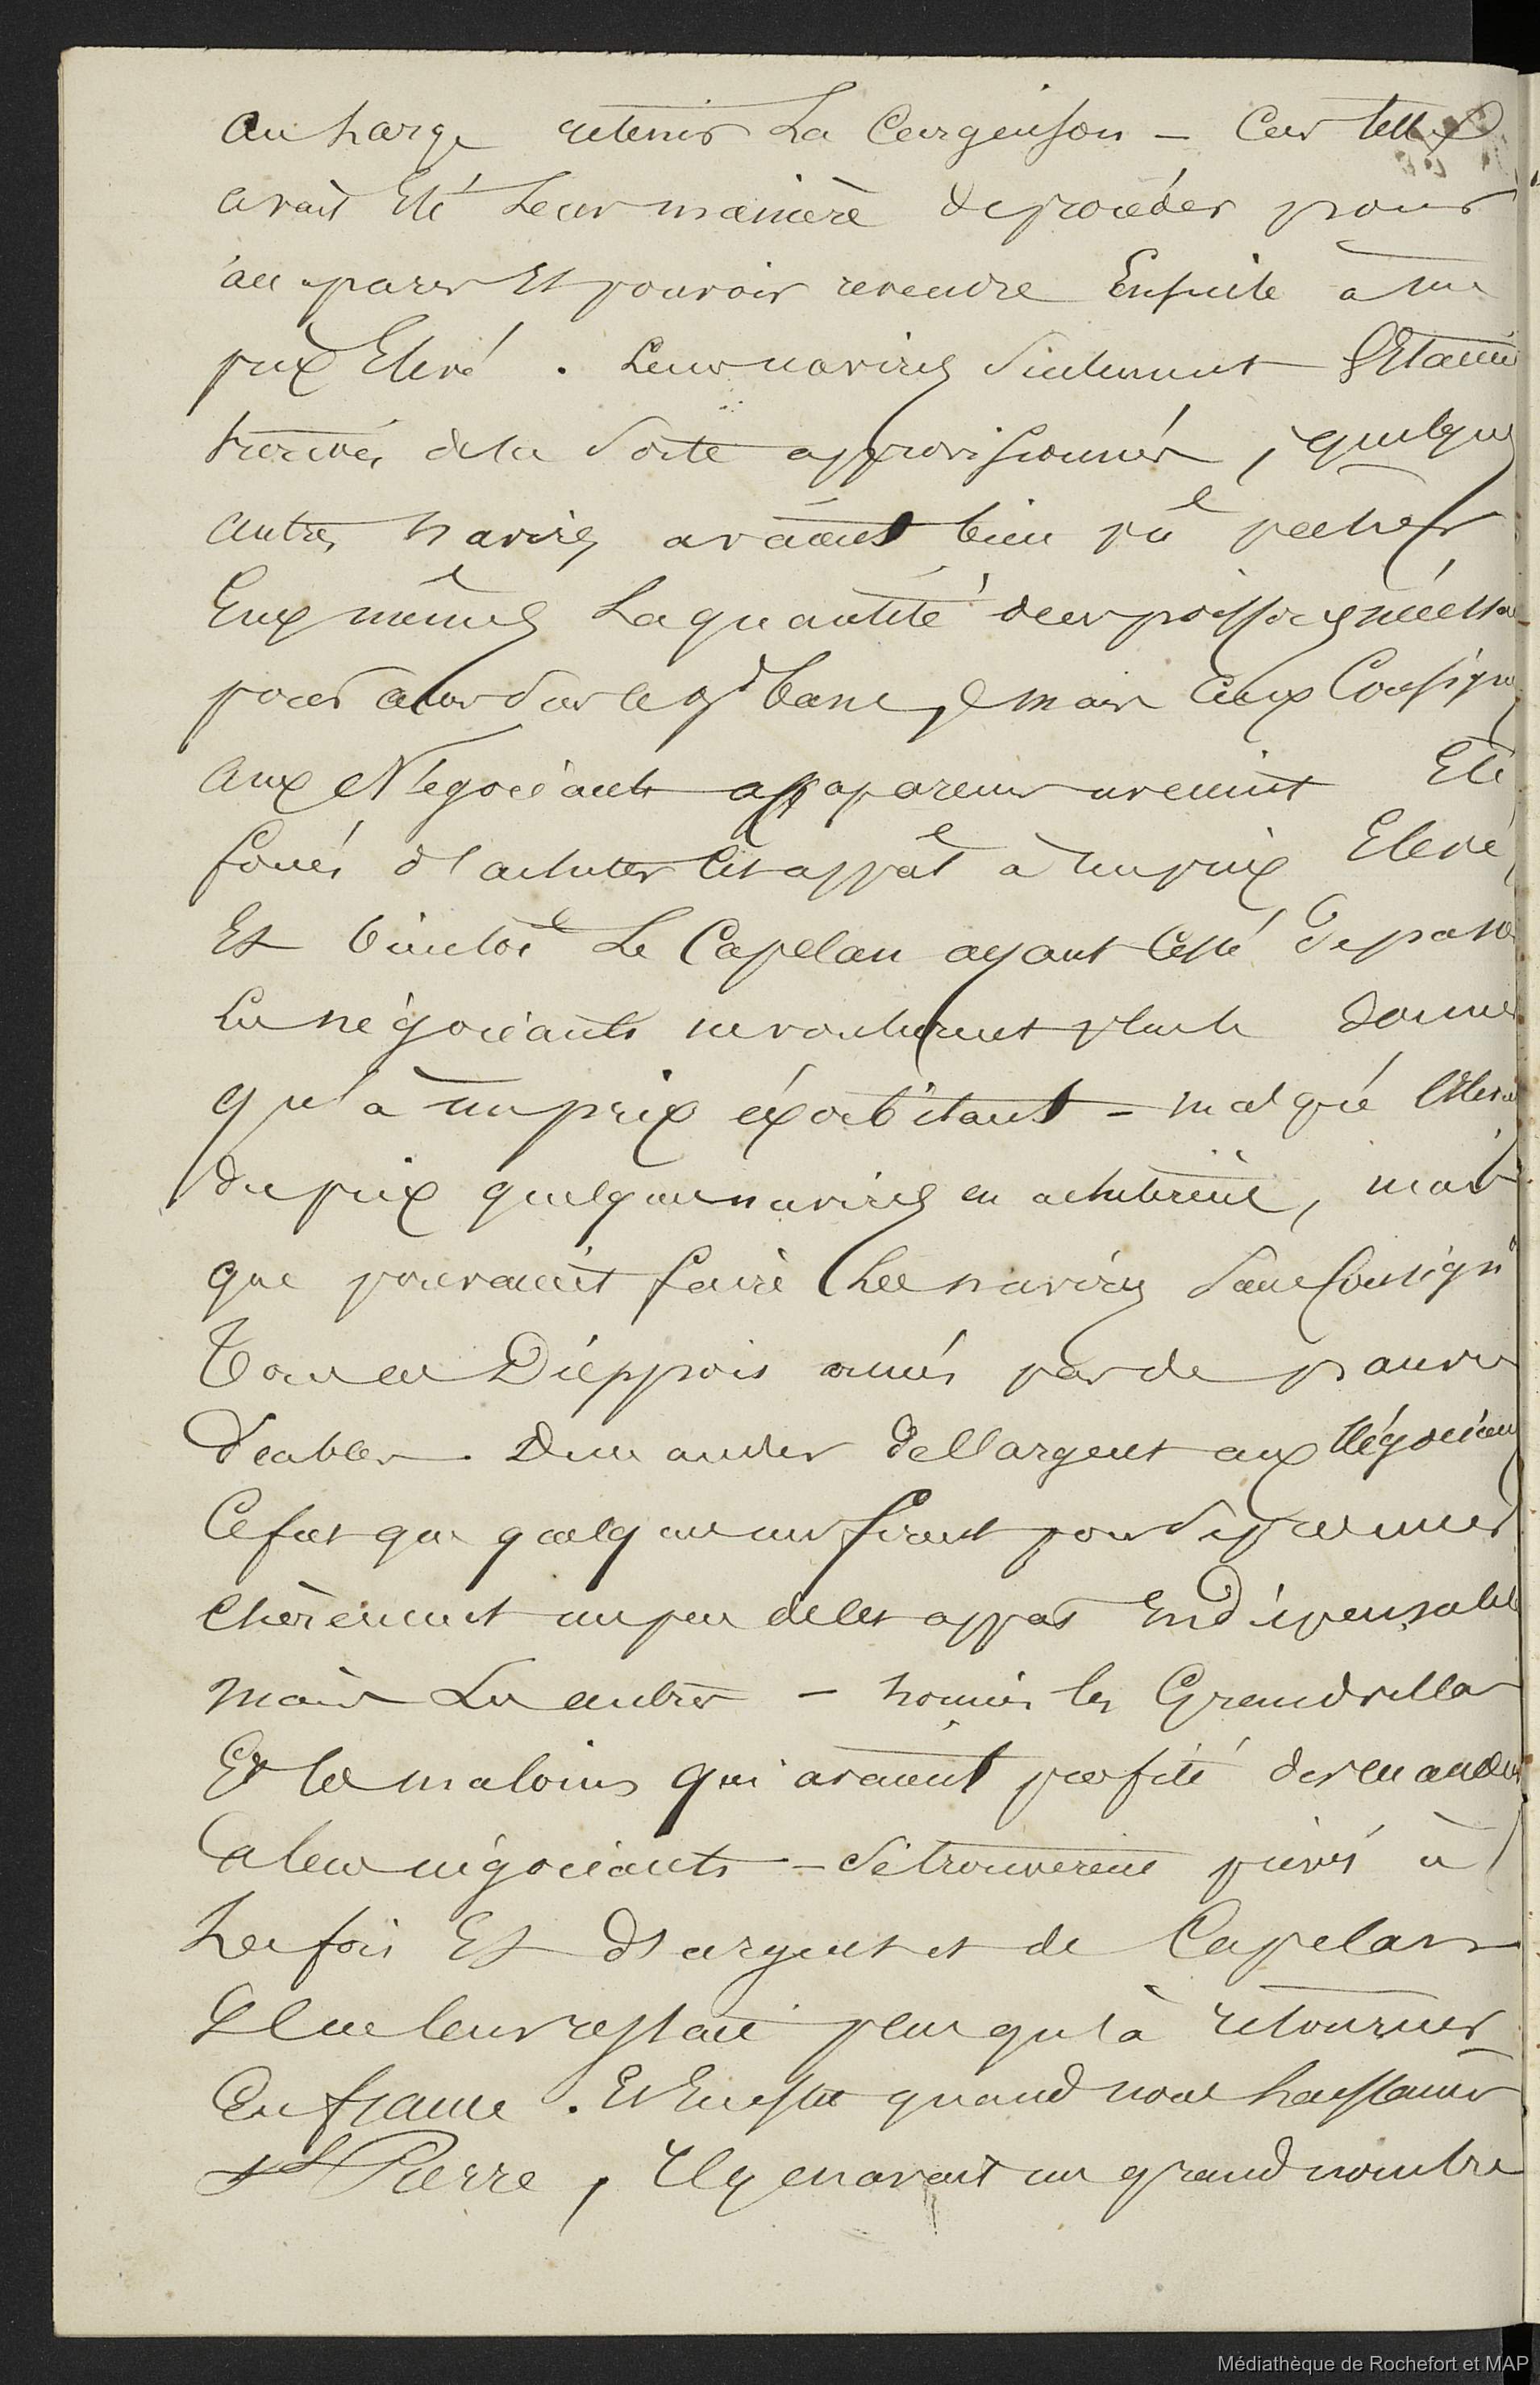 au large retenir La Cargaison – Car telle
avait Eté Leur manière de procéder pour
accaparer Et pouvoir revendre Ensuite à un
prix Elevé . Leurs navires seulement s'Etaient
trouvés de la Sorte approvisionnés , quelques
autres navires avaient bien pû pecher
Eux mêmes La quantité de ces poissons nécessaire
pour aller sur le gd banc , mais Ceux Consignés
aux Négociants accapareurs avaient Eté
forcés d'acheter Cet appât à un prix Elevé
Et bientôt Le Capelan ayant Cessé de passer
Les négociants ne voulurent plus le donner
qu'à un prix éxorbitant – malgré l'Elevé
du prix quelques navires en achetèrent , mais
que pouvaient faire Les navires Sans Consign
Tous les Diéppois armés par de pauvres
diables. Demander de l'argent aux Négociants
Ce fut que quelques uns firent pour se procurer
chèrement un peu de Cet appas indispensable
mais Les autres – hormis les Grandvillais
Et les malouins qui avaient profité des
à leurs négociants – se trouvèrent privés à
La fois Et d'argent et de Capelans
Il ne leur restait plus qu'à retourner
En france . Et Ensuite quand nous Laissames
St Pierre , Il y en avait un grand nombre
Médiathèque de Rochefort et MAP